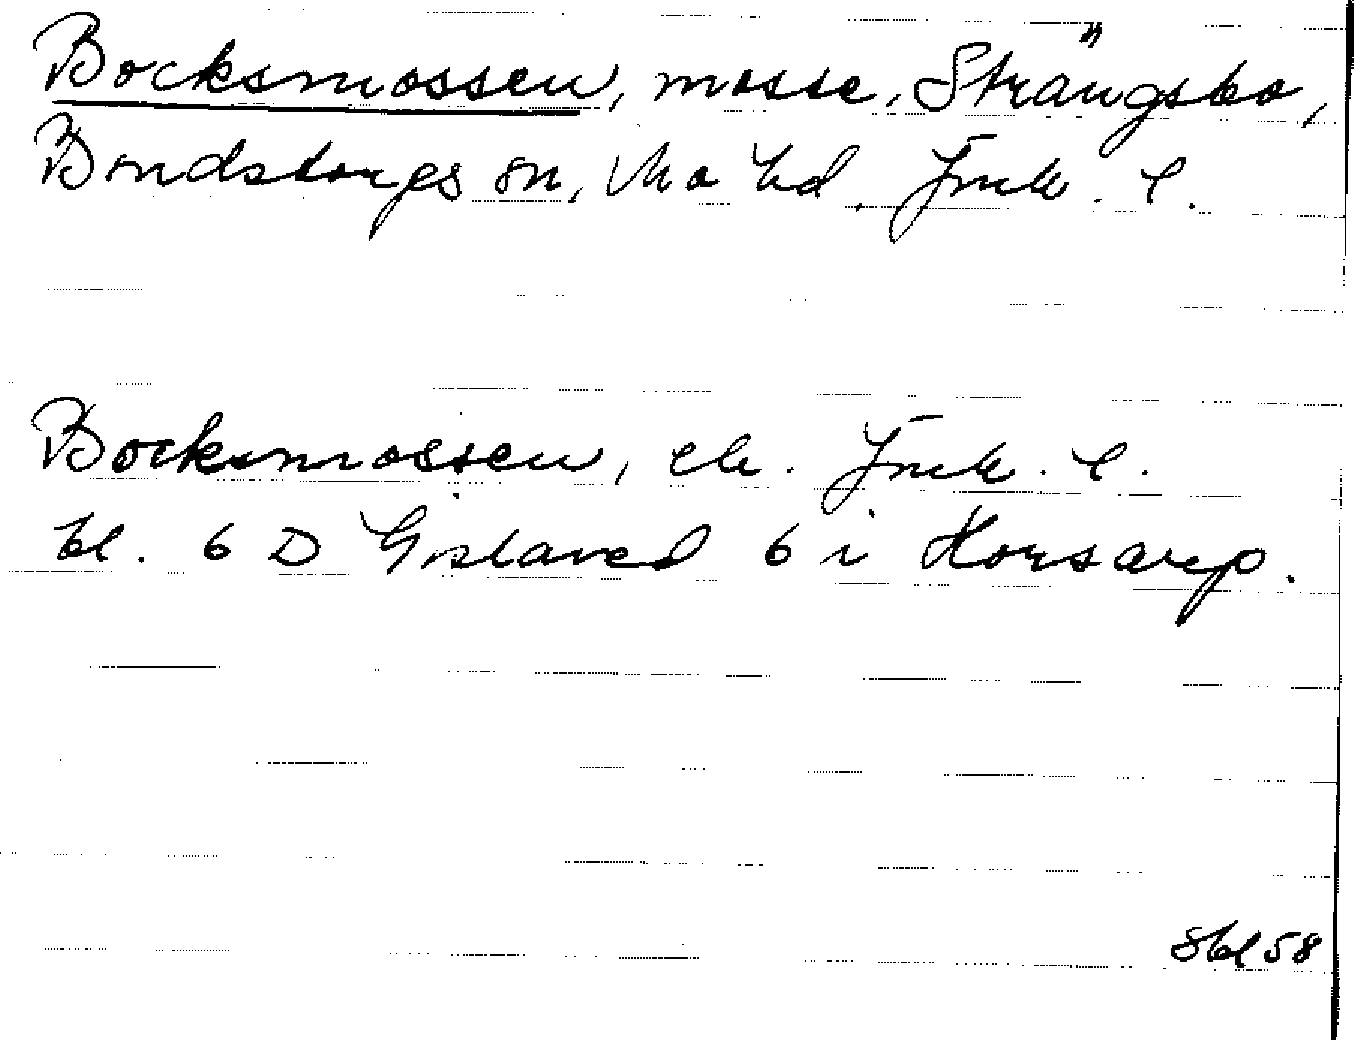 Bocksmossen, mosse, Strängsbo,
Bondstorps sn, Mo hd. Jmk. l.
Bocksmossen, ek. Jmk. l.
bl. 6 D Gislaved 6 i Horsarp.
Sbl 58